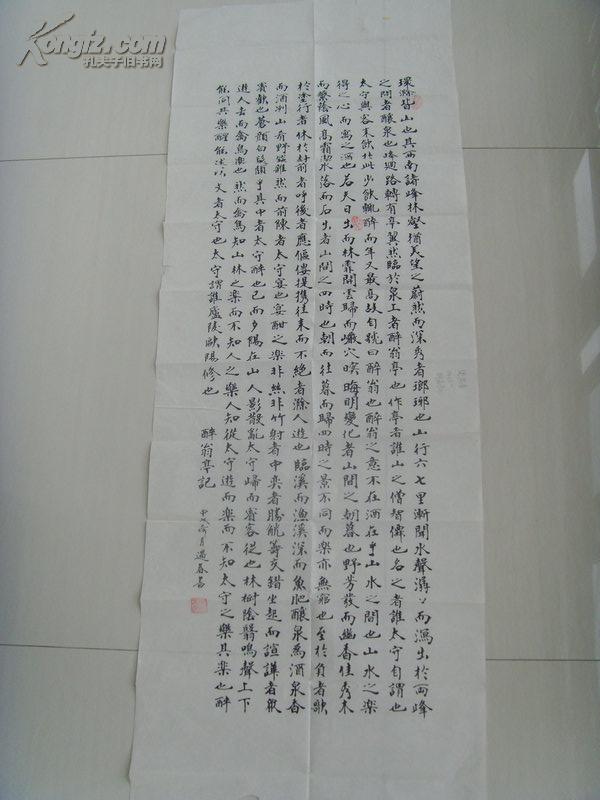 Kongfz.com
孔夫子旧书网
環滁皆山也其西南諸峰林壑猶美望之蔚然而深秀者瑯琊也山行六七里漸聞水聲潺々而瀉出於兩峰
之間者釀泉也峰迴路轉有亭翼然臨於泉上者醉翁亭也作亭者誰山之僧智僊也名之者誰太守自謂也
太守與客來飲於此少飲輒醉而年又最高故自號曰醉翁也醉翁之意不在酒在乎山水之間也山水之樂
得之心而寓之酒也若夫日出而林霏開雲歸而巖穴暝晦明變化者山間之朝暮也野芳發而幽香佳秀木
而繁蔭風高霜潔水落而石出者山間之四時也朝而往暮而歸四時之景不同而樂亦無窮也至於負者歌
於塗行者休於樹前者呼後者應傴僂提攜往来而不絕者滁人遊也臨溪而漁溪深而魚肥釀泉為酒泉香
而酒洌山肴野蔌雜然而前陳者太守宴也宴酣之樂非絲非竹射者中奕者勝觥籌交錯坐起而諠譁者眾
賓歡也蒼顏白髮頹乎其中者太守醉也已而夕陽在山人影散亂太守歸而賓客從也林樹陰翳鳴聲上下
遊人去而禽鳥樂也然而禽鳥知山林之樂而不知人之樂人知從太守遊而樂而不知太守之樂其樂也醉
能同其樂醒能述以文者太守也太守謂誰廬陵歐陽修也
醉翁亭記